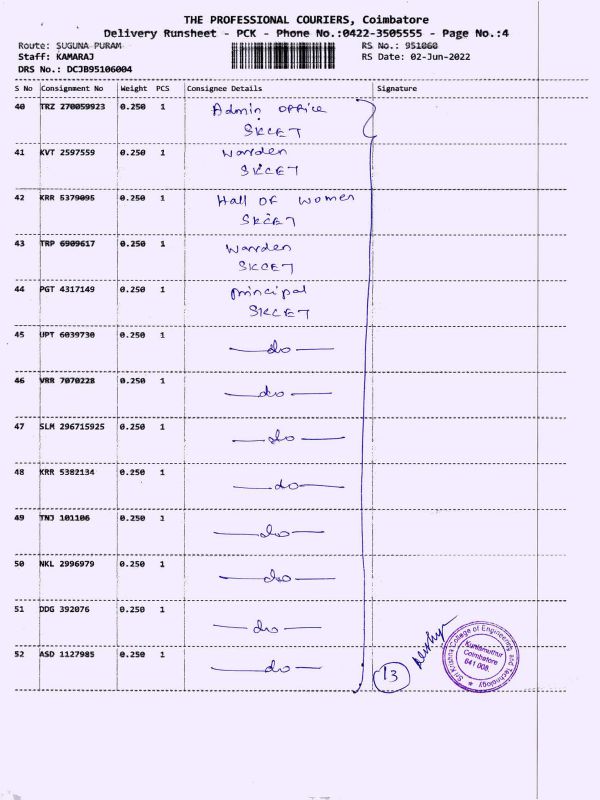 THE PROFESSIONAL COURIERS, Coimbatore
Delivery Runsheet - PCK - Phone No.:0422-3505555 - Page No.:4
Route: SUGUNA PURAM RS No.: 951060
Staff: KAMARAJ RS Date: 02-Jun-2022
DRS No.: DCJB95106004
S No Consignment No Weight PCS Consignee Details Signature
40 TRZ 270059923 0.250 1 Admin office
SKCET
41 KVT 2597559 0.250 1 Warden
SKCET
42 KRR 5379095 0.250 1 Hall of women
SKCET
43 TRP 6909617 0.250 1 Warden
SKCET
44 PGT 4317149 0.250 1 principal
SKCET
45 UPT 6039730 0.250 1 — do —
46 VRR 7070228 0.250 1 — do —
47 SLM 296715925 0.250 1 — do —
48 KRR 5382134 0.250 1 — do —
49 TNJ 101106 0.250 1 — do —
50 NKL 2996979 0.250 1 — do —
51 DDG 392076 0.250 1 — do —
52 ASD 1127985 0.250 1 — do —
13
Sri Krishna College of Engineering and Technology
Kuniamuthur
Coimbatore
641 008.